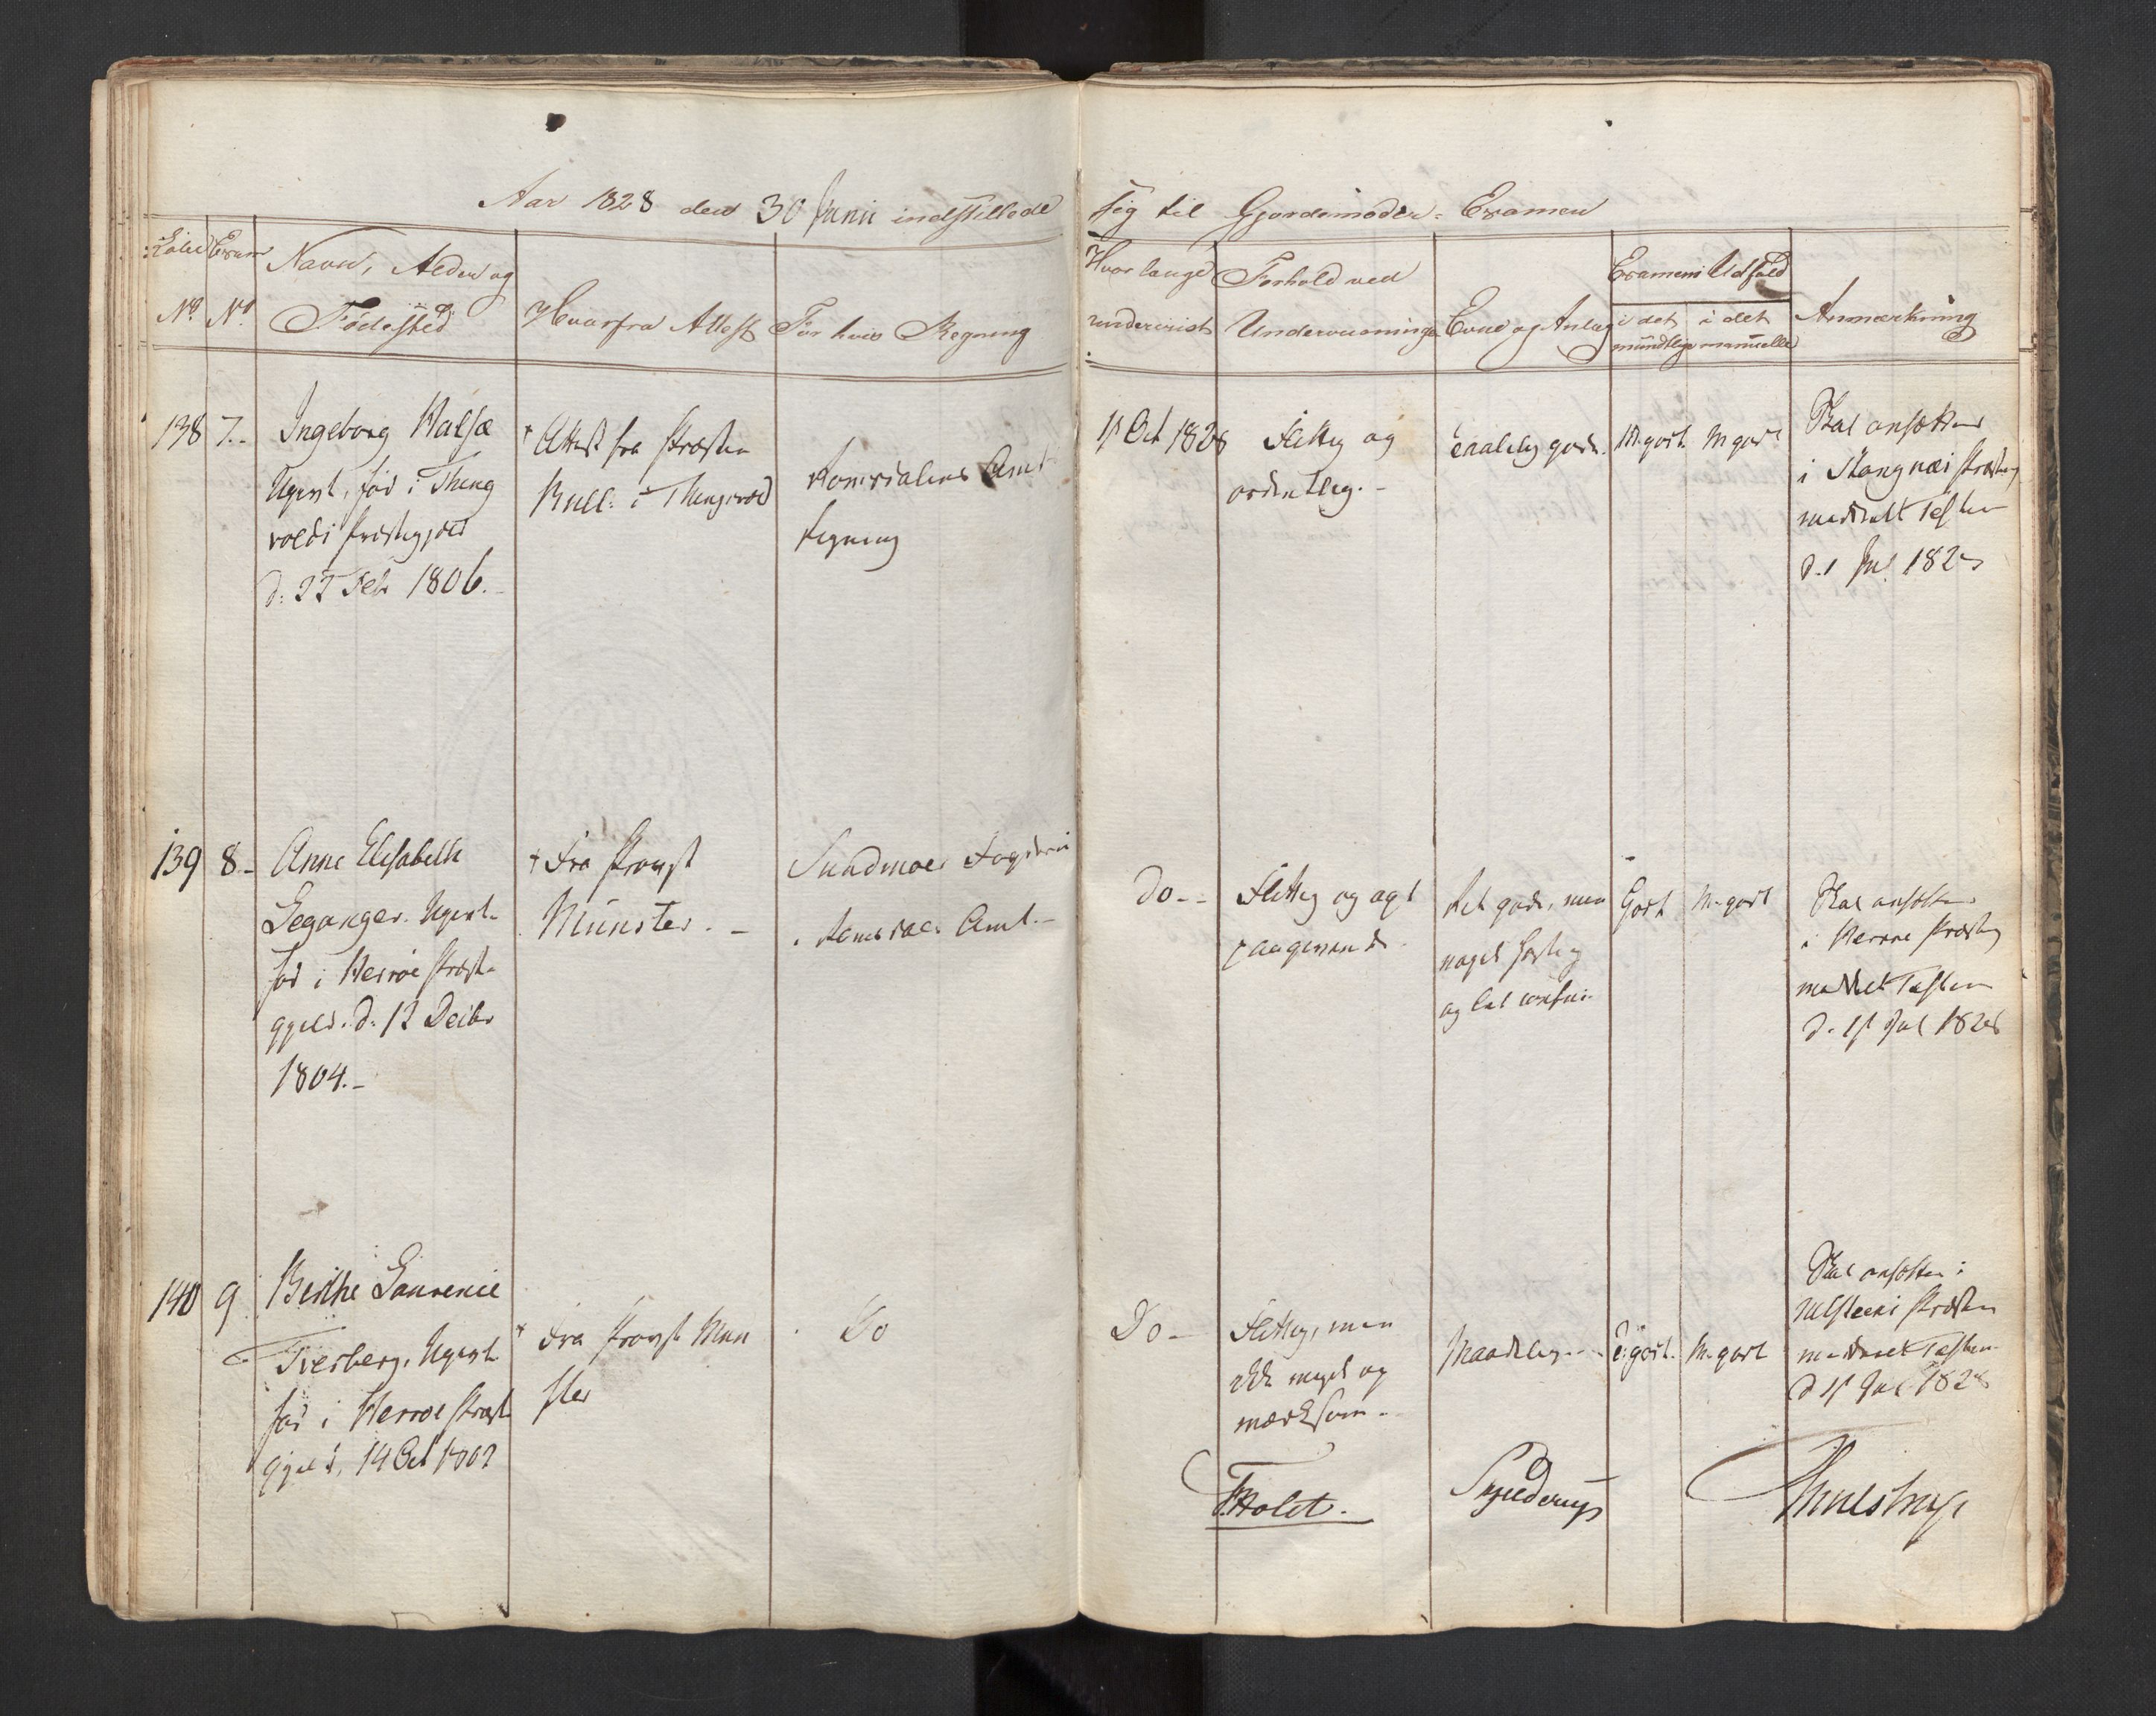 Aar 1828 den 30 Junii indstillede sig til Gjordemoder-Examen
Løbe Exam
No No
Navn, Alder og
Fødested
Hvorfra Attest
For hvis Regning
Hvor længe
underviist
Forhold ved
Underviisningen
Evne og Anlæg
Examens Udfald
i det mündtlige
i det manuelle
Anmærkning
138 7.
Ingeborg Halsæ
Ugivt, fød i Thing
volds Præstegjeld
d. 22 Feb 1806.
Attest fra Præsten
Bull i Thingvold
Romsdalens Amt
Regning
1st Oct 1828
Flittig og
ordentlig.
gode.
M. godt
M godt
Skal ansættes
i Præsteg
meddeelt
d. 1 Jul 182
139 8
Anne Elisabeth
Leganger. Ugivt.
fød i Herrøe Præste
gjeld. d: 12 Decbr
1804.
Fra Provst
Münster.
Sundmoers Fogderie
Romsdals Amt.
Do
Flittig og agt
paagivende.
Ret gode, men
noget
og lidt
Godt
M. godt
Skal ansættes
i Herrøe Præsteg
meddeelt
d. 1st Jul 1828
140 9
Berthe Laurence
Tverberg, Ugivt
fød i Herrøe Præste
gjeld, 14 Oct 1802
Fra Provst Mun
ster
Do
Do
Flittig, men
ikke meget op
mærksom.
Maadelig
godt.
M. godt
Skal ansættes i
Ulfsteens Præsteg
meddeelt
d 1st Jul 1828
F. Holst.
Skjelderup
Thulstrup